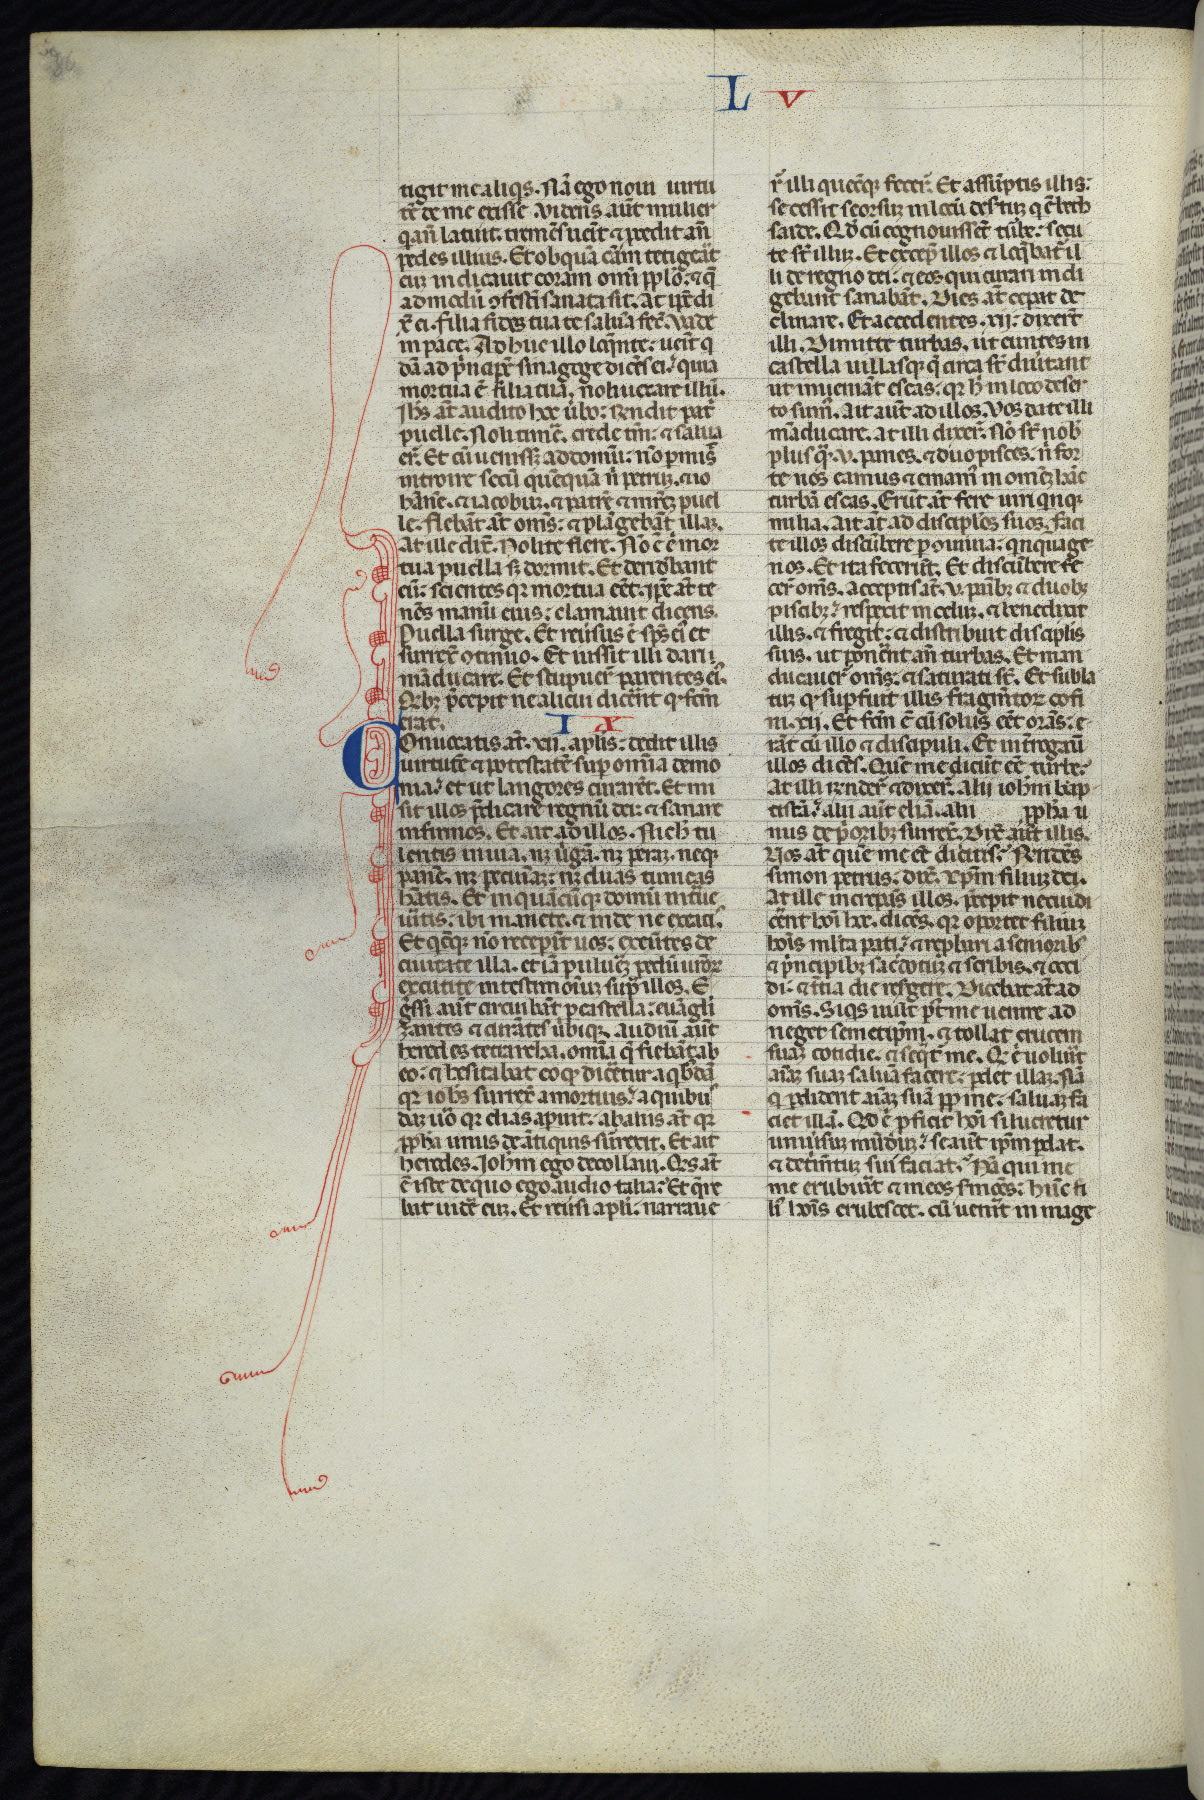 L V
tigit me aliqs. Nā ego noui uirtu
tē de me exisse. Videns aūt mulier
qꝛ nō latuit. tremēs uēit ⁊ pcedit an̄
pedes illius. Et ob quā cām tetigerit
eum indicauit coram omni pplo. ⁊ qē
admodū 9festi sanata sit. At ip̄e di
x̄ ei. filia fides tua te saluā fec̄. uade
in pace. Adhuc illo loqn̄te. ueīt q
dā ad pͥncipē sinagoge dicēs ei. quia
mortua ē filia tua. noli uexare illū.
Ihs at̄ audito hoc ūbo. rn̄dit pat̄
puelle. Noli timē. crede tm̄. ⁊ salua
er̄. Et cū uenissꝫ ad domū. nō pmis̄
introire secū quēquā nͥ petrū. ⁊ io
hāne. ⁊ iacobū. ⁊ patrē ⁊ mr̄eꝫ puel
le. Flebāt at̄ om̄s. ⁊ plāgebāt illaꝫ.
At ille dix̄. Nolite flere. Nō ē ē mor
tua puella sꝫ dormit. Et deridebant
eū. scientes qꝛ mortua eēt. ip̄e at̄ te
nēs manū eius. clamauit dicens.
Puella surge. Et reuˢus ē sp̄s ei̾ et
surrex̄ 9tinuo. Et iussit illi dari
māducare. Et stupuer̄ parentes ei̾.
Qͥbꝫ p̄cepit ne alicui dicērt qͩ fcm̄
erat. IX
Conuocatis at̄. xii. aplis. dedit illis
uirtutē ⁊ potestatē sup omnia demo
nia. et ut langores curarēt. Et mi
sit illos p̄dicare regnū dei. ⁊ sanare
infirmos. Et ait ad illos. Nichͥ tu
leritis in uia. nꝫ uͥgā. nꝫ perā. neqꝫ
panē. nꝫ pecuniā. nꝫ duas tunicas
hēatis. Et in quācūqꝫ domū intͣue
ritis. ibi manete. ⁊ inde ne exeatͥ.
Et qͥcūqꝫ nō recepīt uos. exeūtes de
ciuitate illa. et iā puluēꝫ pedū ur̄oꝝ
excutite in testimoniū supͣ illos. E
gr̄ssi aūt circuibāt p castella. euāgli
zantes ⁊ curātes ubiqꝫ. Audiuͥ aūt
herodes tetrarcha. omīa q̄ fiebāt ab
eo. ⁊ hesitabat eo qꝫ dicētur a qͥbꝰdā
qꝛ iohˢ surrex̄ a mortuis. a quibuˢ
dā uͦo qꝛ elias apuit. ab aliis at̄ qꝛ
ppha unus de ātiquis surrexit. Et ait
herodes. Iohm̄ ego decollaui. Qͥs at̄
ē iste de quo ego audio talia. Et qͣre
bat uidē eū. Et reuˢi apli. narraue
r̄t illi quecūqꝫ fecer̄. Et assūptis illis.
secessit seorsū in locū desʳtū q ē beth
saide. Qd̄ cū cognouissēt tūbe. secu
te sͭ illū. Et excep illos ⁊ loqͤbat̄ il
li de regno dei. ⁊ eos qui cura indi
gebant sanabāt. Dies at̄ cepit de
clinare. Et accedentes. xii. dixer̄t
illi. Dimitte turbas. ut euntes in
castella uillasqꝫ q̄ circa sͭ diūtant
ut inueniāt escas. qꝛ hͥ in loco deser
to sumꝰ. Ait aūt ad illos. Vos date illi
māducare. At illi dixer̄. Nō sͭ nobͥ
plus qͣ. v. panes. ⁊ duo pisces. nͥ for
te nos eamus ⁊ emamꝰ in omēꝫ hāc
turbā escas. Erāt at̄ fere uiri qͥnqꝫ
milia. Ait at̄ ad discipl̄os suos. faci
te illos discūbere p ouiuia. qͥnquage
nos. Et ita fecerūt. Et discūbere fe
cer̄ om̄s. acceptis at̄. v. panibꝫ ⁊ duobꝫ
piscibꝫ. respexit in celū. ⁊ benedixit
illis. ⁊ fregit. ⁊ distribuit disciplis
suis. ut ponerent an̄ turbas. Et man
ducauer̄ om̄s. ⁊ saturati sͭ. Et subla
tū qͩ supfuit illis fragm̄toꝝ cofi
ni. xii. Et fcm̄ ē cū solus eēt orās. e
rāt cū illo ⁊ discipuli. Et int̄rogauͥ
illos dicēs. Quē me dicūt eē turbe.
At illi rn̄der̄ ⁊ dixer̄. alii iohm̄ bap
tistā. alii aūt eliā. alii ppha u
nus de pͥoribꝫ surrex̄. Dix̄ aūt illis.
Vos at̄ quē me eē dicitis. Rn̄dēs
simon petrus. dix̄. Xpm̄ filiū dei.
At ille increpās illos. p̄cepit ne cuidi
cērt hoi hoc. dicēs. qꝛ oportet filiū
hoīs mͭta pati. ⁊ rep̄bari a senioribꝰ
⁊ pͥncipibꝫ sacͤdotū ⁊ scribis. ⁊ occi
di. ⁊ tͥcia die resgere. Dicebat at̄ ad
om̄s. Siqͥs uult pꝰt me uenire ad
neget semetipm̄. ⁊ tollat crucem
suā cotidie. ⁊ seqͣt̄ me. Qͥ ē uolūit
aīaꝫ suā saluā facere. pdet illaꝫ. Nā
qͥ pdiderit aīaꝫ suā pp me. saluaꝫ fa
ciet illā. Qͥd ē pficit hoi si lucretur
uniūsū mūdū. se aūt ipm̄ pdat.
⁊ detͥmtū sui faciat. Nā qui me
me erubuͥt ⁊ meos smōes. hūc fi
liͥ hoīs erubescet. cū ueneͥt in mage